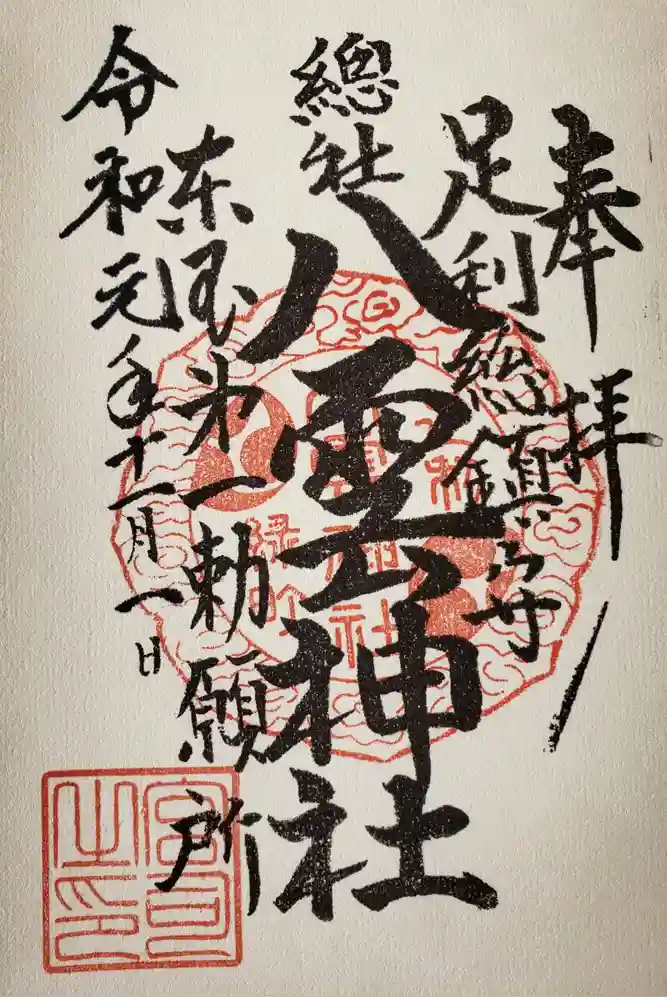 奉拝
足利總鎮守
總社
八雲神社
東国第一勅願所
令和元年十一月一日
宮司之印